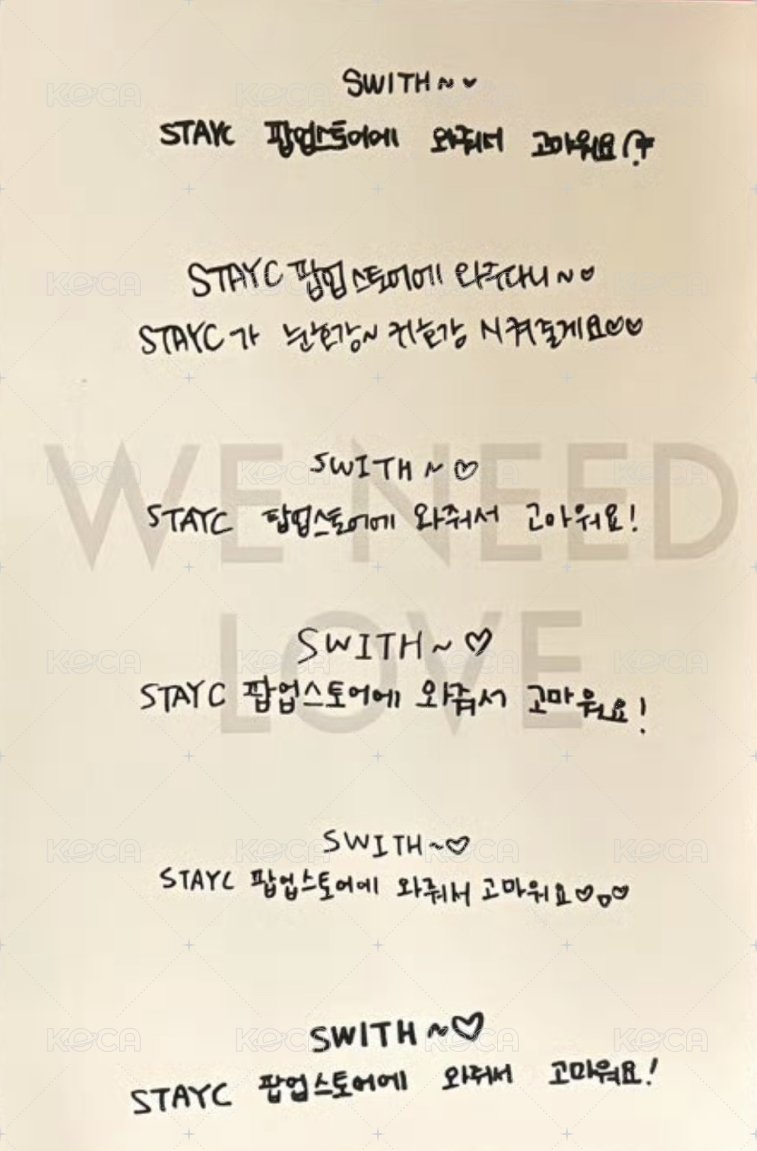 SWITH~♥
STAYC 팝업스토어에 와줘서 고마워요
STAYC 팝업스토어에 와주다니~♡
STAYC가 눈호강~ 귀호강 시켜줄게요♡♡
WE NEED
LOVE
SWITH~♡
STAYC 팝업스토어에 와줘서 고마워요!
SWITH~♡
STAYC 팝업스토어에 와줘서 고마워요!
SWITH~♡
STAYC 팝업스토어에 와줘서 고마워요♡ㅁ♡
SWITH~♡
STAYC 팝업스토어에 와줘서 고마워요!
KOCA